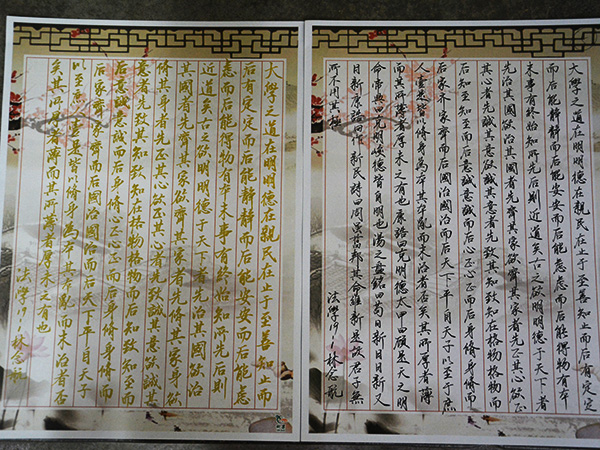 大學之道在明明德在親民在止于至善知止而
后有定定而后能靜靜而后能安安而后能慮
慮而后能得物有本末事有終始知所先后則
近道矣古之欲明明德于天下者先治其國欲治
其國者先齊其家欲齊其家者先修其身欲
修其身者先正其心欲正其心者先致誠其意欲誠其
意者先致其知致知在格物格物而后知致知至而
后意誠意誠而后身修心正心正而后身修身修而
后家齊家齊而后國治國治而后天下平自天子
以至于壹是皆以修身為本其本亂而末治者否
矣其所薄者薄而其所薄者厚未之有也
法學19-1林念
大學之道在明明德在親民在止于至善知止而后有定定
而后能靜靜而后能安安而后能慮慮而后能得物有本
末事有終始知所先后則近道矣古之欲明明德于天下者
先治其國欲治其國者先齊其家欲齊其家者先正其心欲正
其心者先誠其意欲誠其意者先致其知致知在格物格物而
后知至知至而后意誠意誠而后心正心正而后身修身修而
后家齊家齊而后國治國治而后天下平自天子以至于庶
人壹是皆以修身為本其本亂而末治者否矣其所厚者薄
而其所薄者厚未之有也康誥曰克明德太甲曰顧諟天之明
命帝典曰克明峻德皆自明也湯之盤銘曰苟日新日日新又
日新康誥曰作新民詩曰周雖舊邦其命維新是故君子無
所不用其極
法學19-1林念